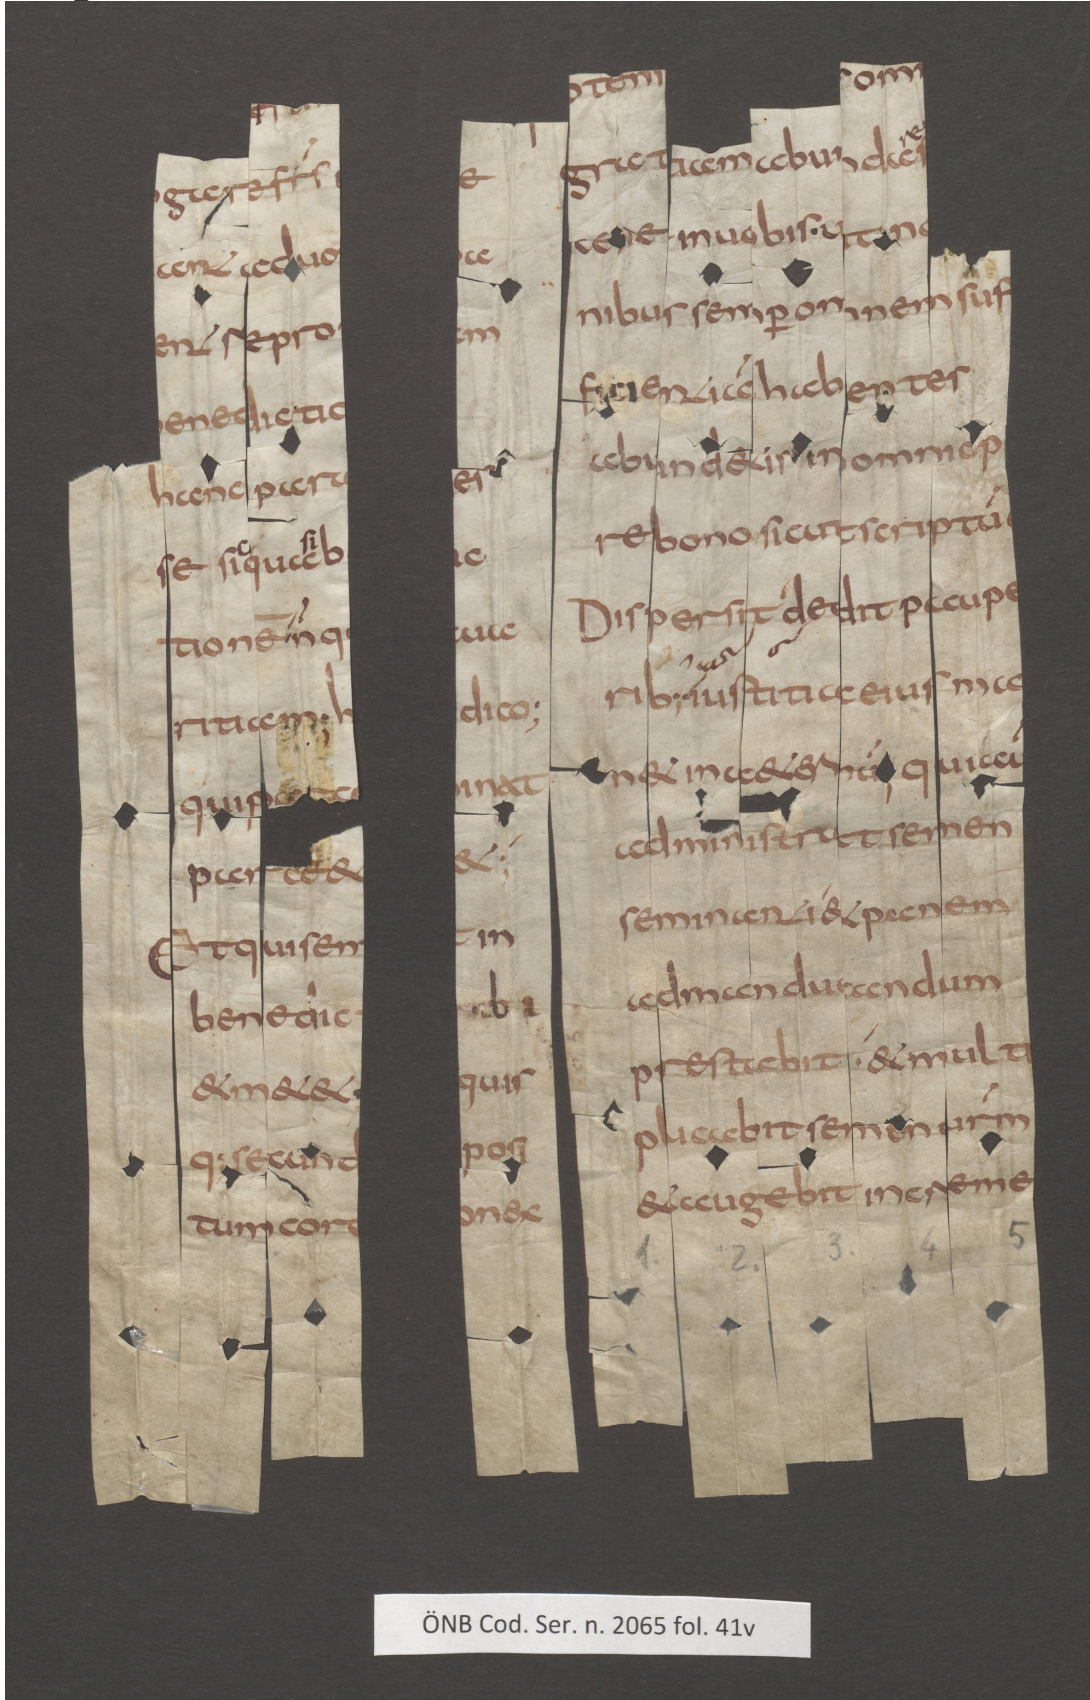 ogare frs e
ant aduo ce
ent & pro em
benedictio
hanc para es
se sic quasi b ne
tionē n q aua
ritiam; h dico;
qui parce inat
parce & &;
Et qui sem t in
benedic b i
& m&& quis
q; secund posi
tum corde onde
otem omn
gratiam abundare
in uobis· ut in o
nibus semp omnem suf
ficientiā habentes
abund&is in omne op
re bono sicut scriptū
Dispersit dedit paupe
rib; iustitia eius ma
n& in a&ernū; qui aū
administrat semen
seminanti & panem
ad manducandum
prestabit · & multi
plicabit semen urm
& augebit increme
1. 2. 3. 4 5
ÖNB Cod. Ser. n. 2065 fol. 41v